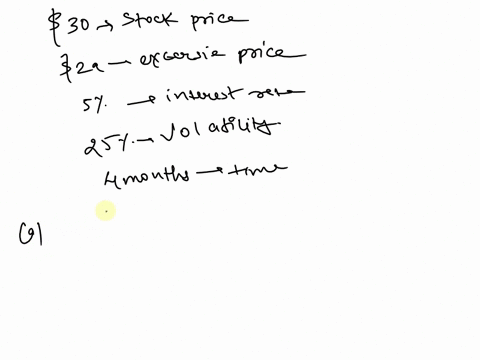 $30 → Stock price
$29 — excersie price
5% → interest rate
25% → volatility
4 months → time
(a)